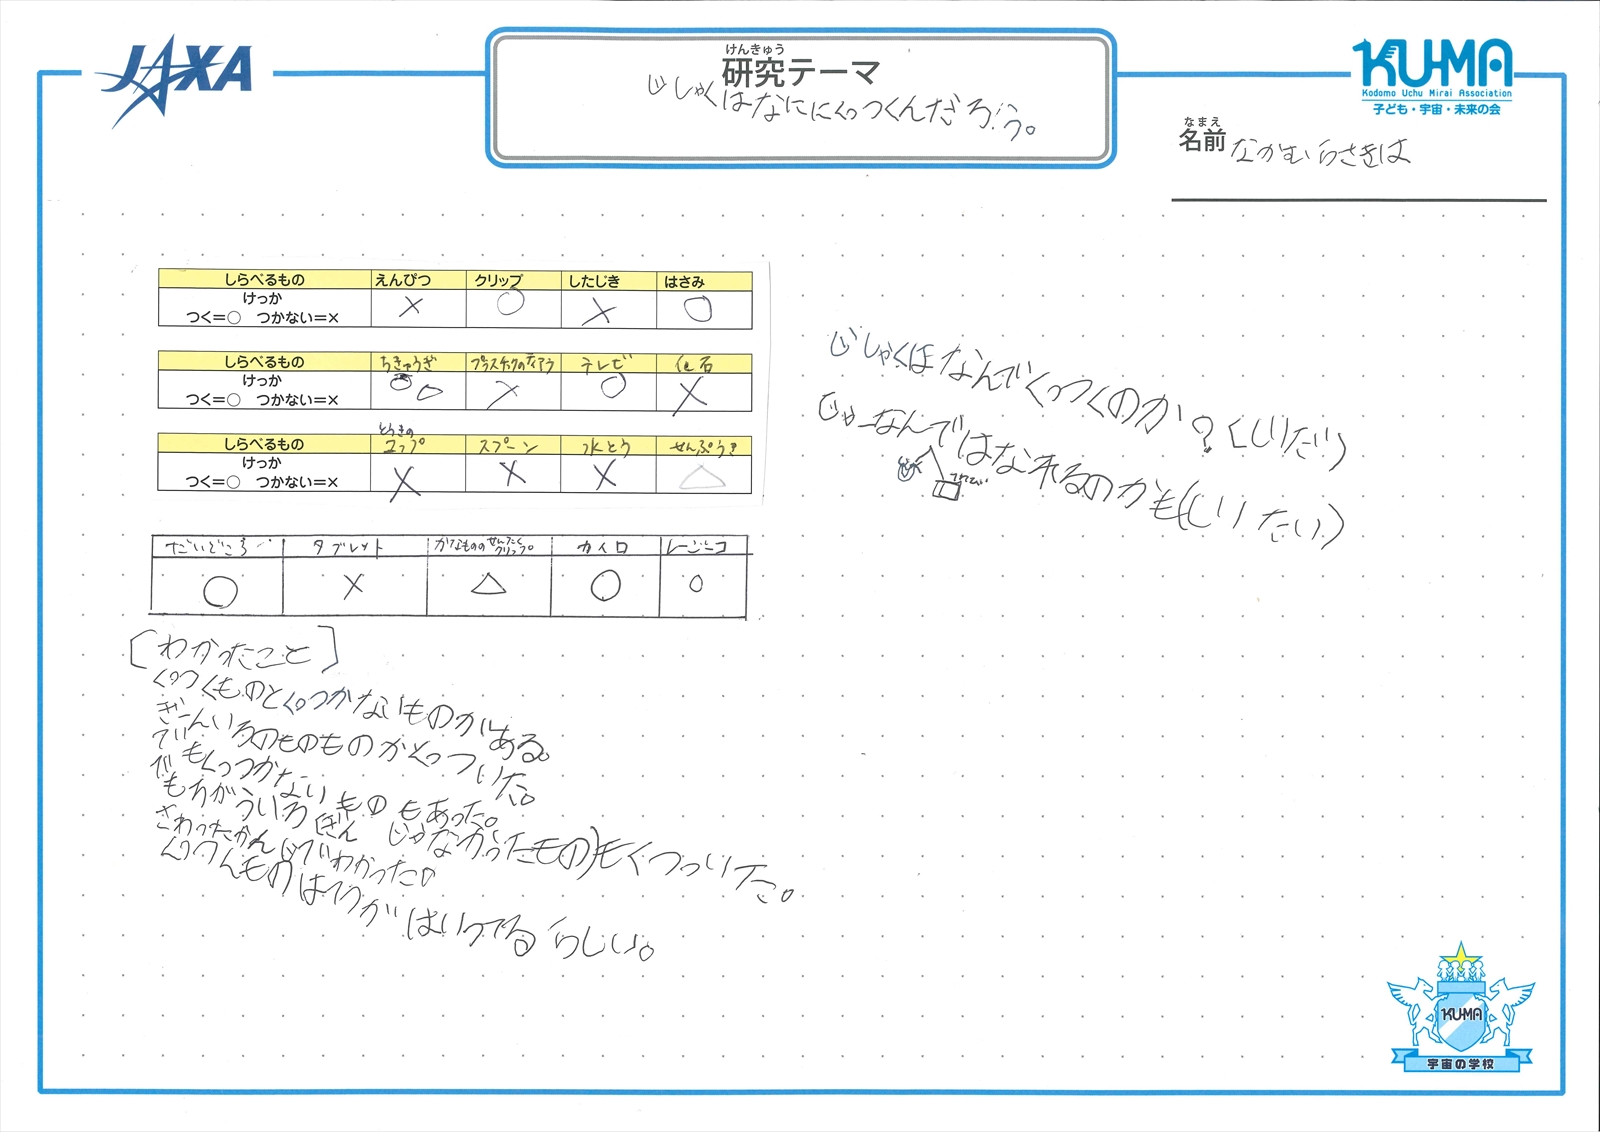 JAXA
けんきゅう
研究テーマ
じしゃくはなににくっつくんだろう。
KU-MA
Kodomo Uchu Mirai Association
子ども・宇宙・未来の会
なまえ
名前 なかむらさきは
しらべるもの えんぴつ クリップ したじき はさみ
けっか
つく=○ つかない=× × ○ × ○
しらべるもの ちきゅうぎ プラスチックのティアラ テレビ 化石
けっか
つく=○ つかない=× ○ ○ × ○ ×
とうきの
しらべるもの コップ スプーン 水とう せんぷうき
けっか
つく=○ つかない=× × × × △
だいどころ タブレット かなもののせんたくクリップ カイロ
○ × △ ○ ○
[わかったこと]
くっつくものとくっつかないものがある。
ぎんいろのものものがくっついた。
でもくっつかないものもあった。
でもちがういろ(ぎんじゃなかったもの)もくっついた。
さわったかんじでわかった。
くっつくものはてつがはいってるらしい。
じしゃくはなんでくっつくのか?(しりたい)
じゃーなんではなれるのかも(しりたい)
KU-MA
宇宙の学校